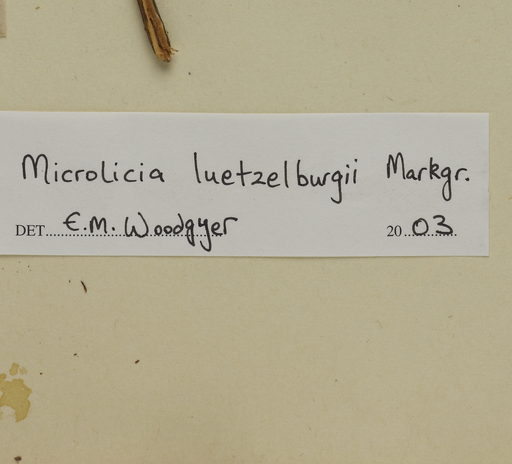 Microlicia luetzelburgii Markgr.
DET. E.M. Woodgyer 2003